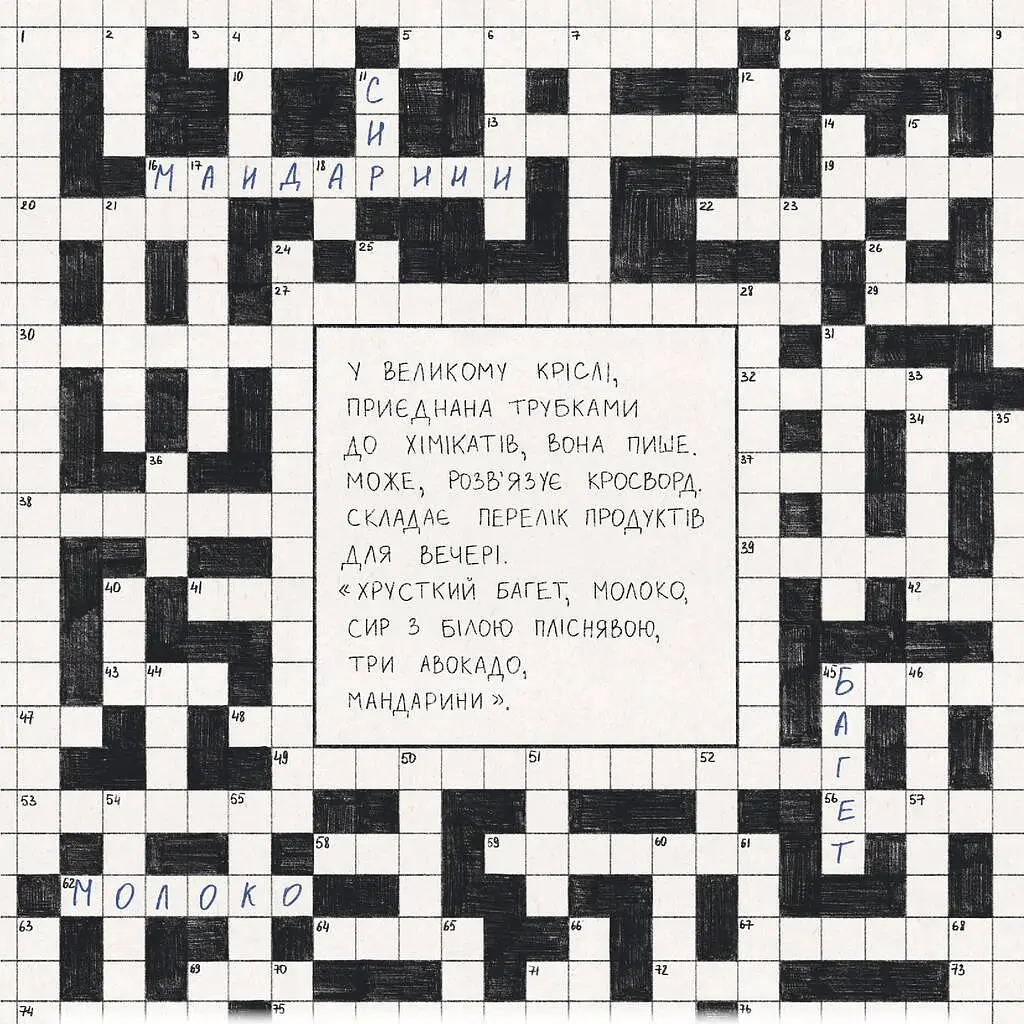 1 2 3 4 5 6 7 8 9
10 11 12
СИР
13 14 15
16 17 18 19
МАНДАРИНИ
20 21 22 23
24 25 26
27 28 29
30 31
У ВЕЛИКОМУ КРІСЛІ,
ПРИЄДНАНА ТРУБКАМИ
ДО ХІМІКАТІВ, ВОНА ПИШЕ.
МОЖЕ, РОЗВ'ЯЗУЄ КРОСВОРД.
СКЛАДАЄ ПЕРЕЛІК ПРОДУКТІВ
ДЛЯ ВЕЧЕРІ.
«ХРУСТКИЙ БАГЕТ, МОЛОКО,
СИР З БІЛОЮ ПЛІСНЯВОЮ,
ТРИ АВОКАДО,
МАНДАРИНИ».
32 33
34 35
36 37
38
39
40 41 42
43 44 45 46
БАГЕТ
47 48
49 50 51 52
53 54 55 56 57
58 59 60 61
62
МОЛОКО
63 64 65 66 67 68
69 70 71 72 73
74 75 76